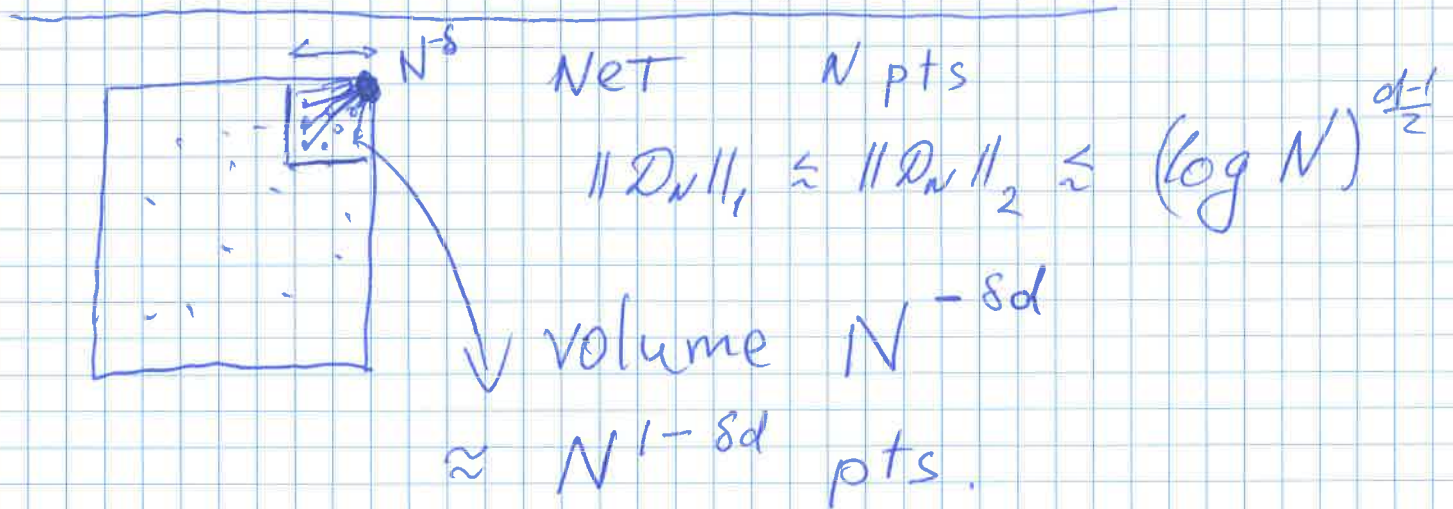 N^{-δ} Net N pts
‖D_N‖_1 ≲ ‖D_N‖_2 ≲ (log N)^{\frac{d-1}{2}}
volume N^{-δd}
≈ N^{1-δd} pts.